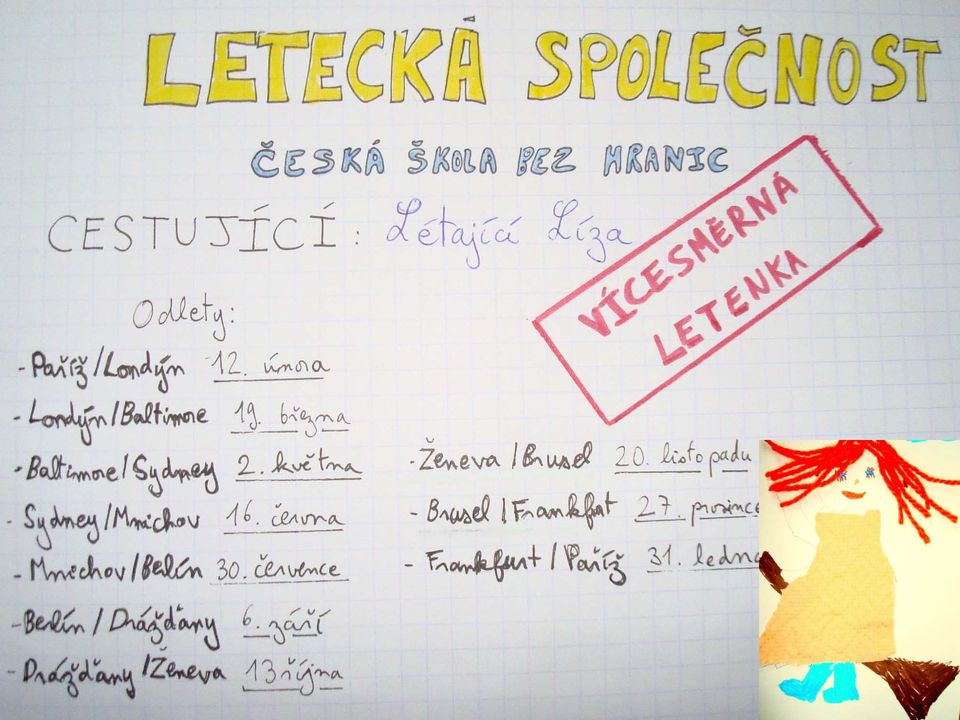 LETECKÁ SPOLEČNOST
ČESKÁ ŠKOLA BEZ HRANIC
CESTUJÍCÍ: Létající Líza
VÍCESMĚRNÁ
LETENKA
Odlety:
- Paříž/Londýn 12. února
- Londýn/Baltimore 19. března
- Baltimore/Sydney 2. května
- Sydney/Mnichov 16. června
- Mnichov/Belín 30. července
- Berlín / Drážďany 6. září
- Drážďany/Ženeva 13 října
- Ženeva /Brusel 20. listopadu
- Brusel /Frankfut 27. prosince
- Frankfurt / Paříž 31. ledna